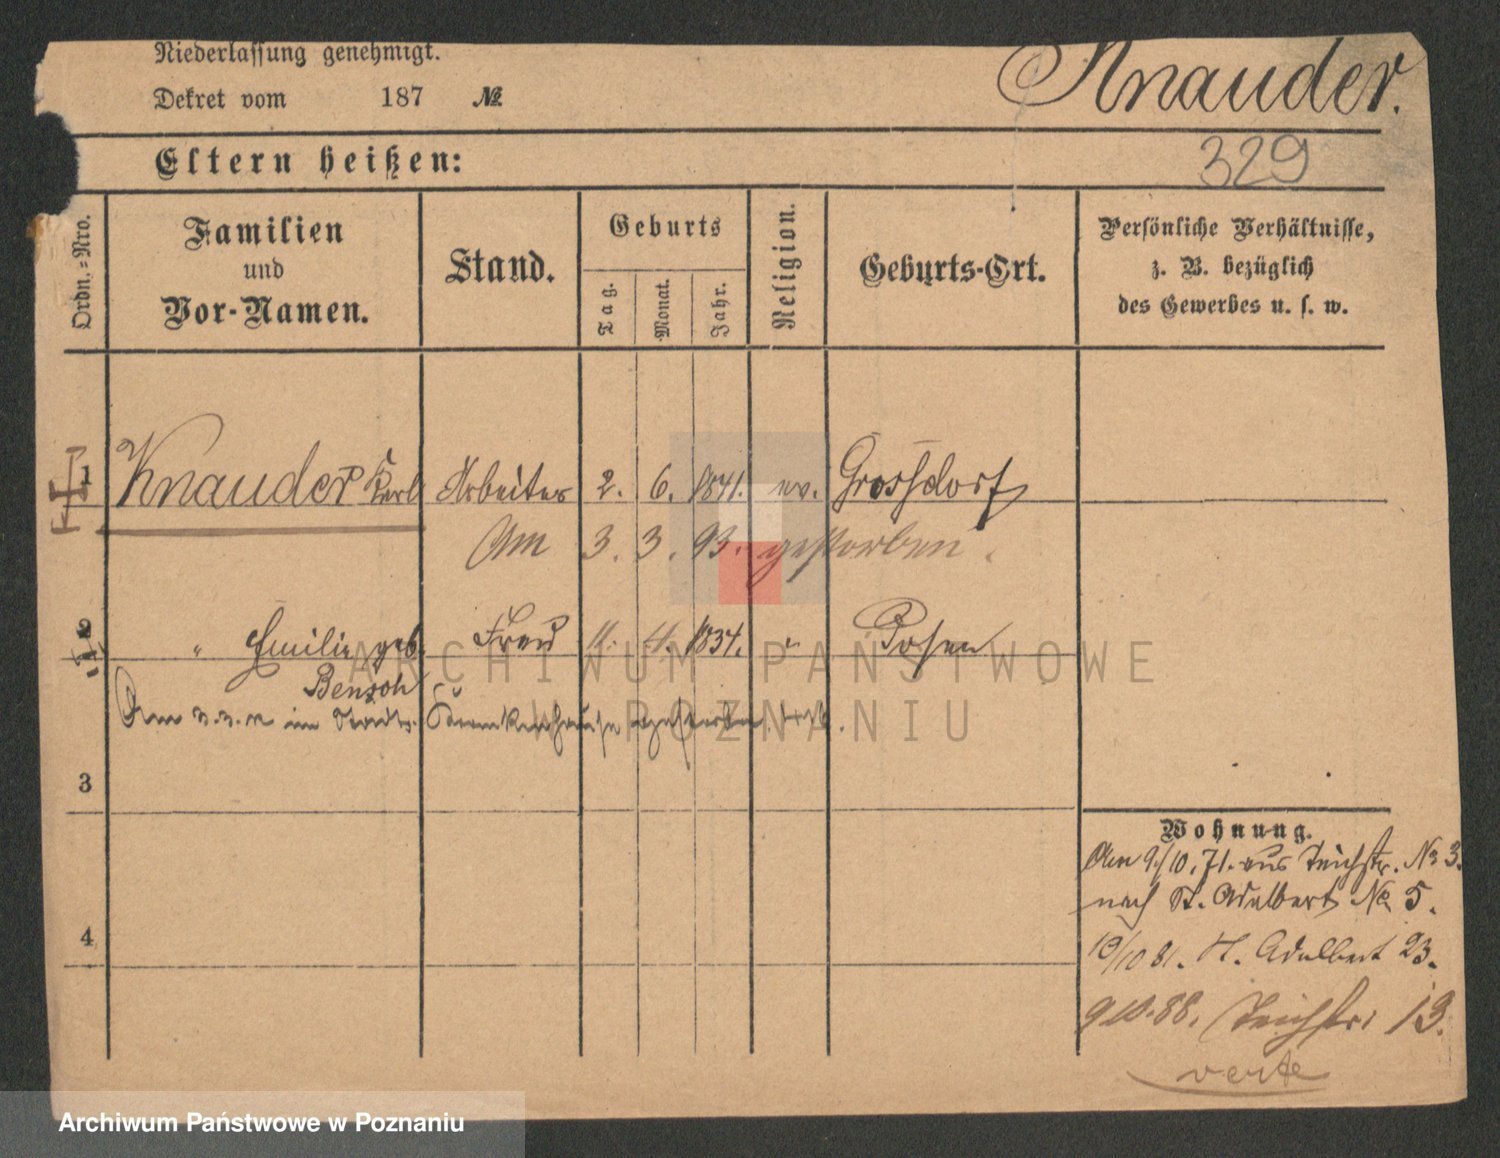 Niederlassung genehmigt.
Dekret vom 187 №
Knauder.
Eltern heißen:
329
Ordn.=Nro.
Familien
und
Vor-Namen.
Stand.
Geburts
Tag.
Monat.
Jahr.
Religion.
Geburts-Ort.
Persönliche Verhältnisse,
z. B. bezüglich
des Gewerbes u. s. w.
1 Knauder Karl Arbeiter 2. 6. 1841. ev. Grossdorf
Am 3. 3. 93. gestorben.
2 " Emilie geb. Frau 11. 4. 1834. " Posen
Am im Stadt. Krankenhause gestorben.
3
4
Wohnung.
Am 9/10. 71. aus Teichstr. No 3.
nach St. Adalbert No 5.
10/10 81. St. Adalbert 23.
9 10. 88. Teichstr. 13.
verte
ARCHIWUM PAŃSTWOWE
W POZNANIU
Archiwum Państwowe w Poznaniu